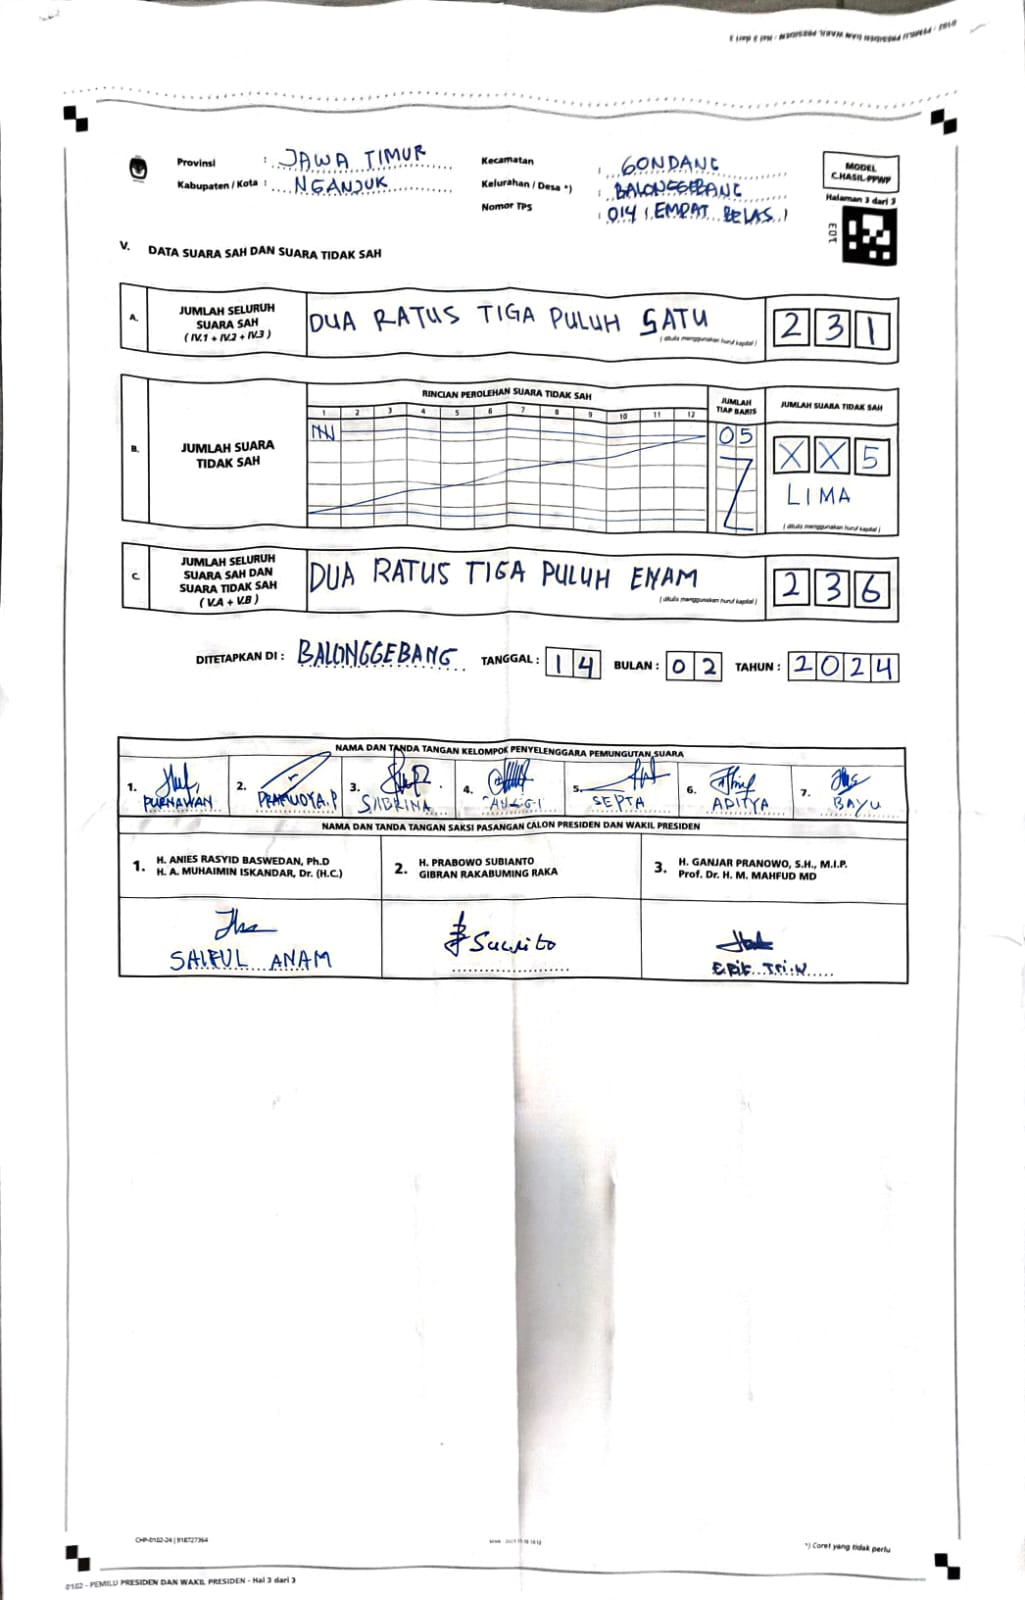 0102 - PEMILU PRESIDEN DAN WAKIL PRESIDEN - Hal 3 dari 3
Provinsi : JAWA TIMUR
Kabupaten / Kota : NGANJUK
Kecamatan : GONDANG
Kelurahan / Desa *) : BALONGGEBANG
Nomor TPS : 014 (EMPAT BELAS)
MODEL
C.HASIL-PPWP
Halaman 3 dari 3
103
V. DATA SUARA SAH DAN SUARA TIDAK SAH
A. JUMLAH SELURUH
SUARA SAH
( IV.1 + IV.2 + IV.3 )
DUA RATUS TIGA PULUH SATU
( ditulis menggunakan huruf kapital )
2 3 1
B. JUMLAH SUARA
TIDAK SAH
RINCIAN PEROLEHAN SUARA TIDAK SAH
1 2 3 4 5 6 7 8 9 10 11 12
JUMLAH
TIAP BARIS
05
JUMLAH SUARA TIDAK SAH
X X 5
LIMA
( ditulis menggunakan huruf kapital )
C. JUMLAH SELURUH
SUARA SAH DAN
SUARA TIDAK SAH
( V.A + V.B )
DUA RATUS TIGA PULUH ENAM
( ditulis menggunakan huruf kapital )
2 3 6
DITETAPKAN DI : BALONGGEBANG TANGGAL : 14 BULAN : 02 TAHUN : 2024
NAMA DAN TANDA TANGAN KELOMPOK PENYELENGGARA PEMUNGUTAN SUARA
1. PURNAWAN
2.
3. SABRINA
4.
5. SEPTA
6. ADITYA
7. BAYU
NAMA DAN TANDA TANGAN SAKSI PASANGAN CALON PRESIDEN DAN WAKIL PRESIDEN
1. H. ANIES RASYID BASWEDAN, Ph.D
H. A. MUHAIMIN ISKANDAR, Dr. (H.C.)
2. H. PRABOWO SUBIANTO
GIBRAN RAKABUMING RAKA
3. H. GANJAR PRANOWO, S.H., M.I.P.
Prof. Dr. H. M. MAHFUD MD
SAIFUL ANAM
Erik Tri.W
CHP-0102-24 | 918727364
*) Coret yang tidak perlu
0102 - PEMILU PRESIDEN DAN WAKIL PRESIDEN - Hal 3 dari 3